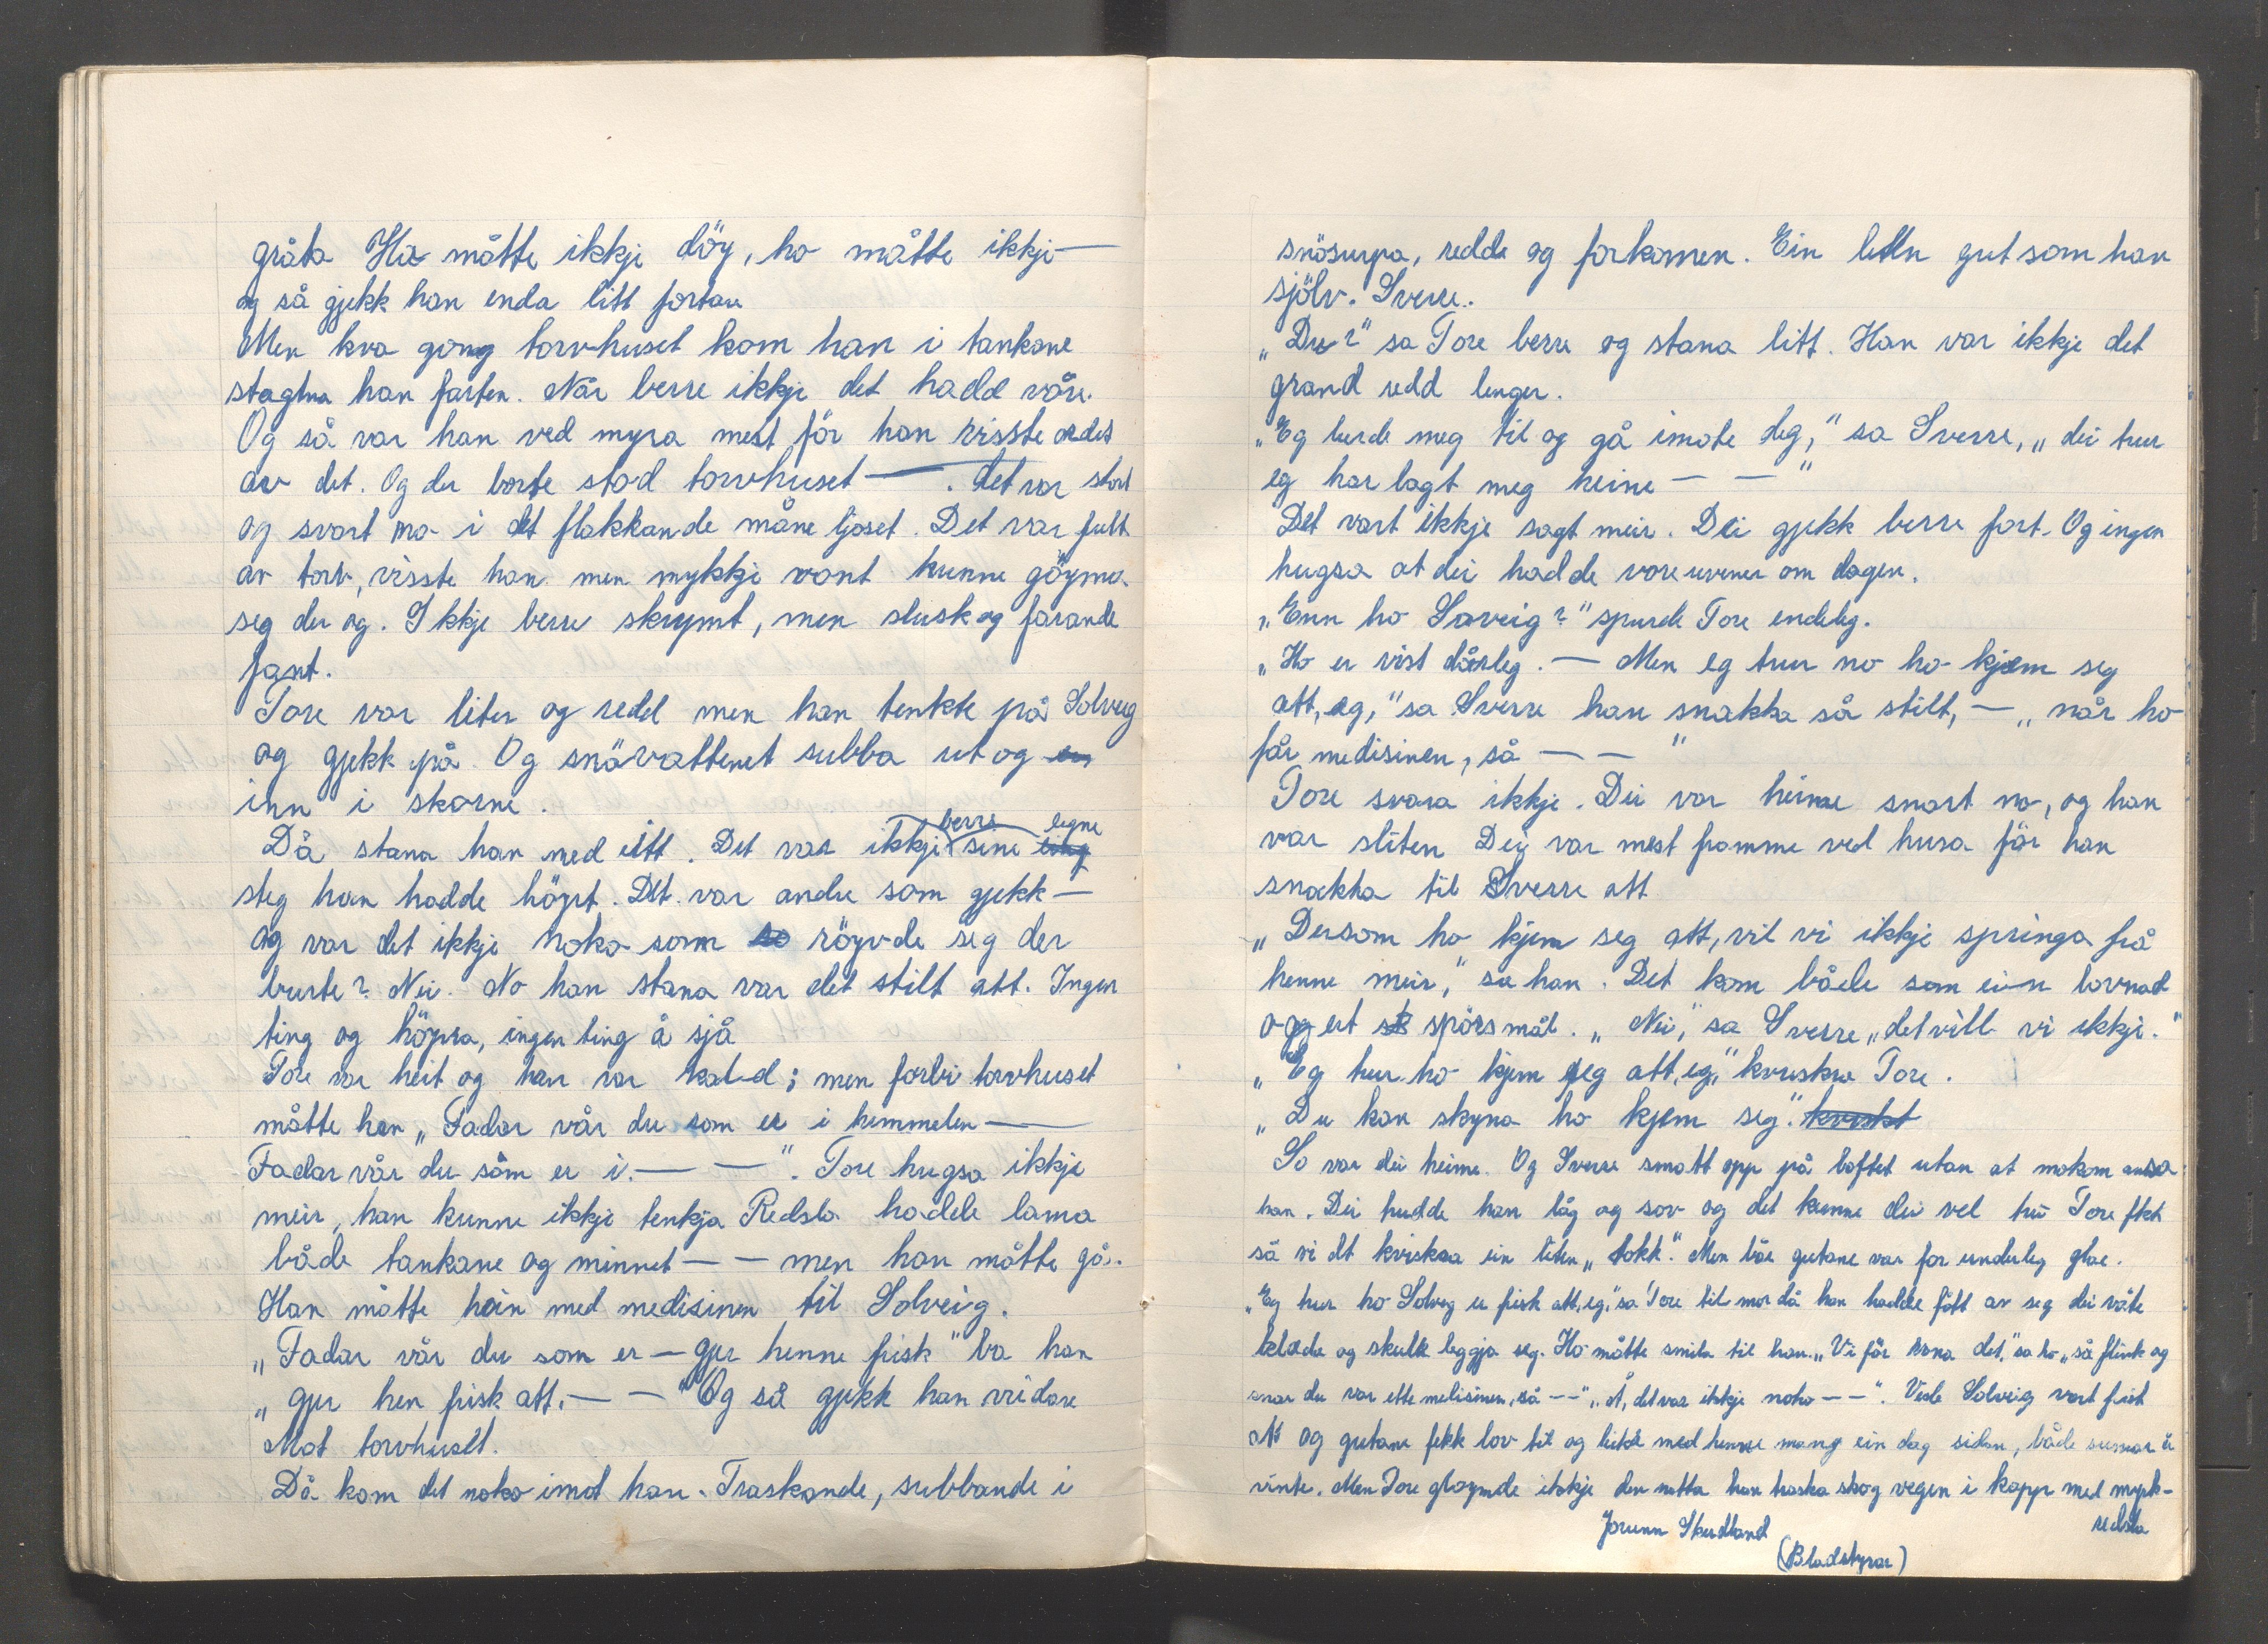 gråta Ha måtte ikkje döy, ho måtte ikkje —
og så gjekk han enda litt fortare
Men kva gong torvhuset kom han i tankane
stagtna han farten. Når berre ikkje det hadd våre.
Og så var han ved myra mest för han visste ordet
av det. Og der borte stod torvhuset — . det var stort
og svart no i det flakkande måne ljoset. Det var fullt
av torv, visste han men mykkje vont kunne göyma
seg der og. Ikkje berre skrymt, men slusk og farande
fant.
Tore var liten og redd men han tenkte på Solveig
og gjekk på. Og snövattenet subba ut og
inn i skorne.
Då stana han med eitt. Det var ikkje berre sine eigne
steg han hadde höyrt. Det var andre som gjekk —
og var det ikkje noko som so röyvde seg der
burte? Nei. No han stana var det stilt att. Ingen
ting og höyra, ingen ting å sjå
Tore var heit og han var kald; men forbi torvhuset
måtte han „Fadar vår du som er i himmelen —
Fadar vår du som er i. — —". Tore hugsa ikkje
meir, han kunne ikkje tenkja Redsla hadde lama
både tankane og minnet — — men han måtte gå.
Han måtte heim med medisinen til Solveig.
„Fadar vår du som er — gjer henne frisk" ba han
„gjer hen frisk att. — —" Og så gjekk han vidare
Mot torvhuset.
Då kom det noko imot han. Traskande, subbande i
snösurpa, redde og forkomen. Ein liten gut som han
sjölv. Sverre.
„Du?" sa Tore berre og stana litt. Han var ikkje det
grand redd lenger.
„Eg lurde meg til og gå imote deg," sa Sverre, „dei trur
eg har lagt meg heine — —"
Det vart ikkje sagt meir. Dei gjekk berre fort. Og ingen
hugsa at dei hadde vore uvener om dagen.
„Enn ho Solveig?" spurde Tore endeleg.
„Ho er vist dårleg. — Men eg trur no ho kjem seg
att, eg," sa Sverre han snakka så stilt, — „når ho
får medisinen, så — —"
Tore svara ikkje. Dei var heime snart no, og han
var sliten Dei var mest framme ved husa för han
snakka til Sverre att
„Dersom ho kjem seg att, vil vi ikkje springa frå
henne meir," sa han. Det kom både som ein lovnad
og et spörsmål. „Nei," sa Sverre „det vill vi ikkje."
„Eg trur ho kjem seg att, eg," kviskra Tore.
„Du kan skyna ho kjem seg". kviskt
So var dei heime. Og Sverre smatt opp på loftet utan at nokon ansa
han. Dei trudde han låg og sov og det kunne dei vel tru Tore fikk
så vi dt kviskra ein liten „takk". Men båe gutane var for underleg glae.
„Eg trur ho Solveg er frisk att, eg," sa Tore til mor då han hadde fått av seg dei våte
klæda og skulle leggja seg. Ho måtte smila til han. „Vi får vona det," sa ho „så flink og
snar du var ette medisinen, så — —" „Å, det var ikkje noko — —". Vesle Solveig vart frist
att og gutane fekk lov til og leika med henne mang ein dag sidan, både sumar å
vinte. Men Tore gloymde ikkje den natta han traska skog vegen i kapp med myrk-
redsla
Jorunn Skudland
(Bladstyrar)